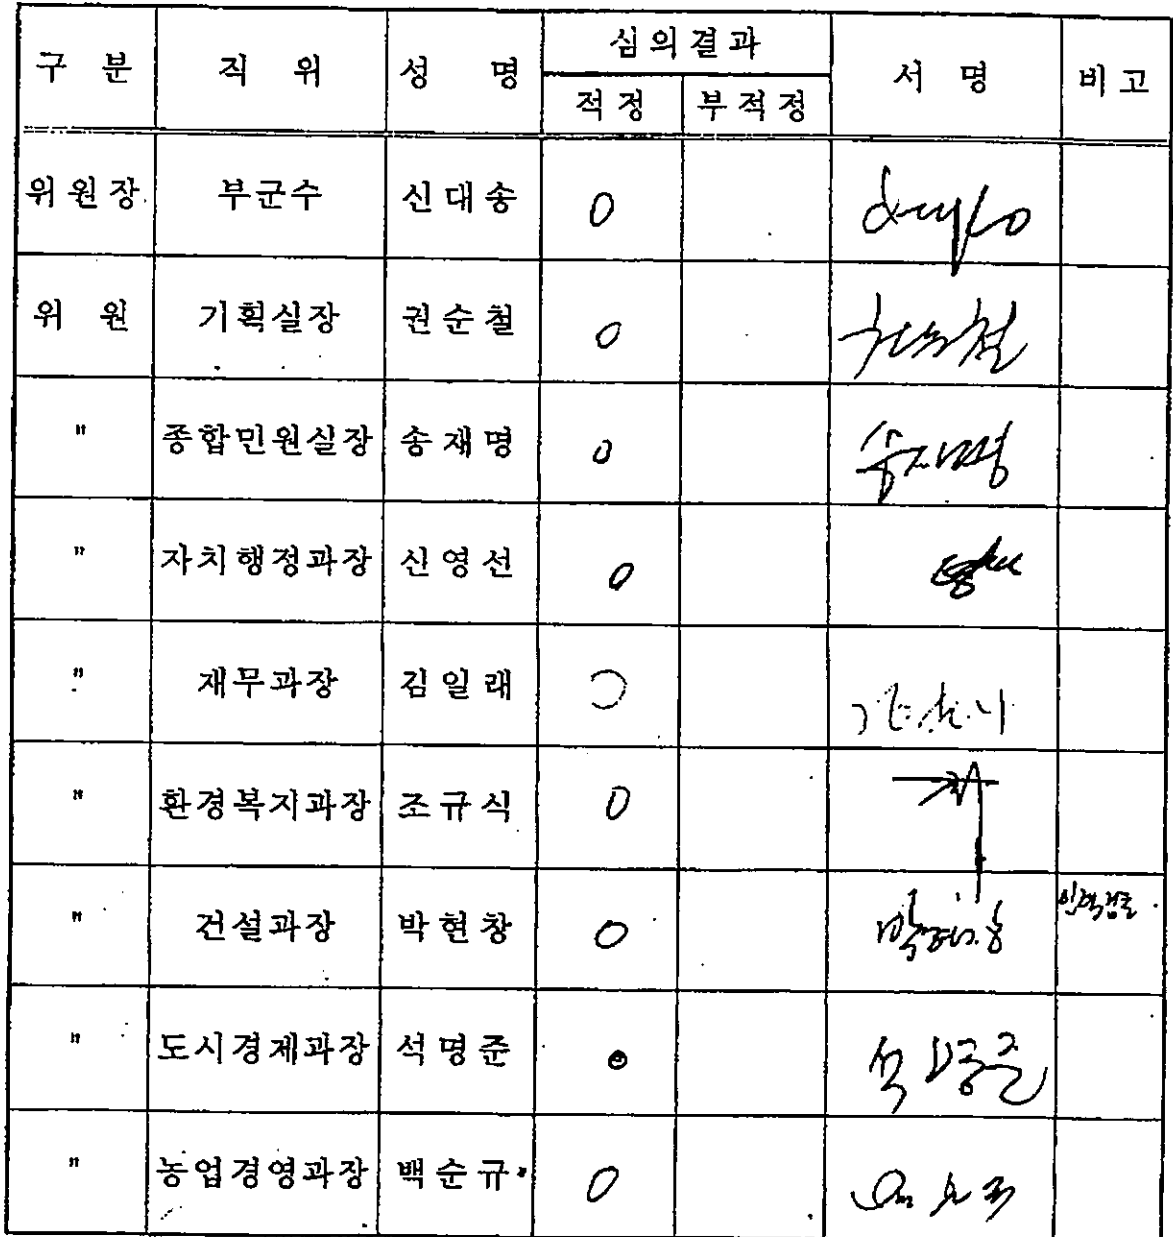 구 분 직 위 성 명 심의결과 서 명 비고
적정 부적정
위원장 부군수 신대송 0
위 원 기획실장 권순철 0 권순철
" 종합민원실장 송재명 0 송재명
" 자치행정과장 신영선 0
" 재무과장 김일래 0
" 환경복지과장 조규식 0
" 건설과장 박현창 0 박현창
" 도시경제과장 석명준 0 석명준
" 농업경영과장 백순규 0